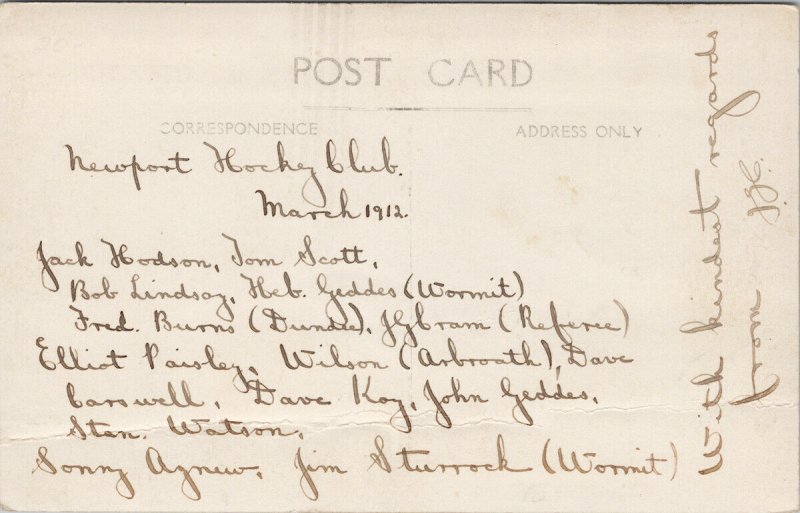 POST CARD
CORRESPONDENCE
ADDRESS ONLY
Newport Hockey Club.
March 1912.
Jack Hodson, Tom Scott,
Bob Lindsay, Heb. Geddes (Wormit)
Fred. Burns (Dundee), (Referee)
Elliot Paisley, Wilson (Arbroath), Dave
Carswell, Dave Kay, John Geddes,
Stan. Watson,
Sonny Agnew, Jim Sturrock (Wormit)
With kindest regards
from